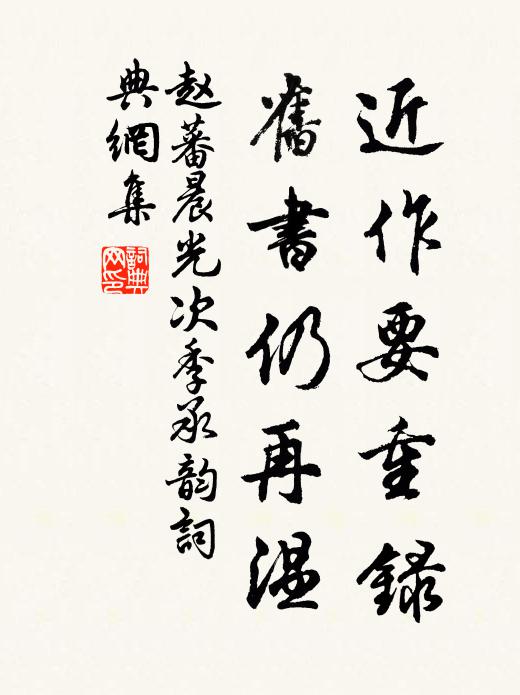 近作要重錄
舊書仍再溫
赵蕃晨光次季承韵詞
典網集
詞典网印